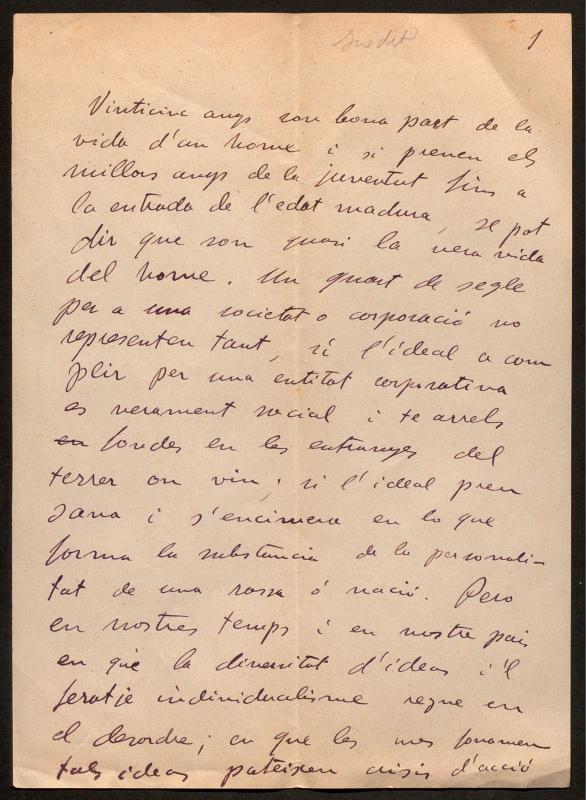 Inedit
1
Vinticinc anys son bona part de la
vida d'un home i si prenen els
millors anys de la juventut fins a
la entrada de l'edat madura, se pot
dir que son quasi la vera vida
del home. Un quart de segle
per a una societat o corporació no
representen tant, si l'ideal a com
plir per una entitat corporativa
es verament social i te arrels
en fondes en les entranyes del
terrer on viu; si l'ideal pren
sava i s'encimera en lo que
forma la substancia de la personali-
tat de una rassa ó nació. Pero
en nostres temps i en nostre pais
en què la diversitat d'ideas i'l
feratje individualisme regne en
el desordre; en que les mes fonamen
tals ideas pateixen crisis d'acció